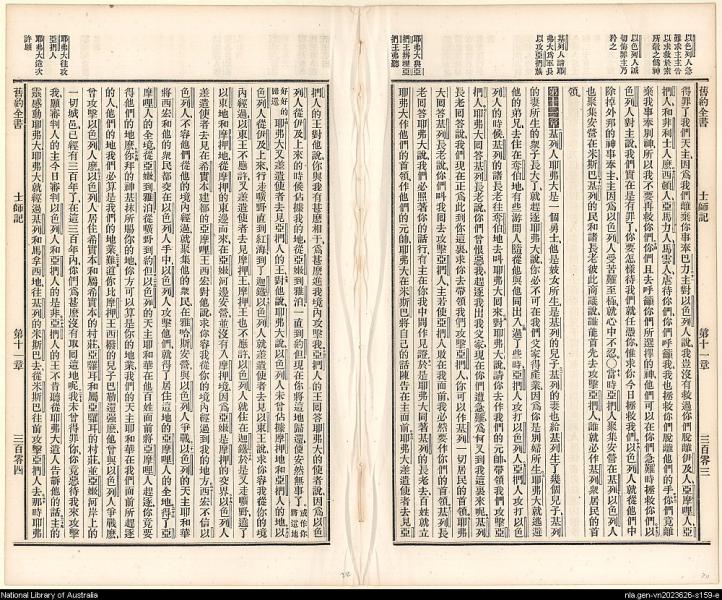 舊約全書 士師記 第十一章 三百零三
以色列人急
難求主主告
以求救於素
所敬之僞神
以色列人認
矜之
基列人請耶
弗大爲軍長
以攻亞捫族
耶弗大與亞
捫王辨理亞
捫王弗聽
得罪了我們天主因爲我們離棄你事奉巴力主對以色列人說我豈沒有救過你們脫離伊及人亞摩哩人亞
捫人和非利士人麼西頓人亞馬力人馬雲人虐待你們你們呼籲我我也拯救你們脫離他們的手你們竟離
棄我事奉別神所以我不要再救你們你們且去呼籲你們所選擇的神他們可以在你們急難時拯救你們以
色列人對主說我們實在是有罪了你要怎樣待我們就任憑你惟求你今日拯救我們以色列人就從他們中
除掉外邦的神事奉主主因爲以色列人受苦難至極就心中不忍當時亞捫人聚集安營在基列以色列人
也聚集安營在米斯巴基列的民和諸長老彼此商議說誰能首先去攻擊亞捫人誰就必作基列衆居民的首
領
第十一章 基列人耶弗大是一個勇士他是妓女所生是基列的兒子基列的妻也給基列生了幾個兒子基列
的妻所生的衆子長大了就趕逐耶弗大說你必不可在我們父家得產業因爲你是別婦所生耶弗大就逃避
他的弟兄去住在陀伯地有些游閒人隨從他與他同出入過了些時亞捫人攻打以色列人亞捫人攻打以色
列人的時候基列的諸長老往陀伯地去叫耶弗大回來對耶弗大說請你去作我們的元帥帶領我們攻擊亞
捫人耶弗大回答基列長老說你們曾恨惡我趕逐我出我父家現在你們遭急難爲何又到我這裏來呢基列
長老回答說我們現在正爲此到你這裏來求你去帶領我們攻擊亞捫人你可以作基列一切居民的首領耶弗
大回答基列長老說你們叫我回去攻擊亞捫人主若使亞捫人敗在我面前我必然要作你們的首領基列長
老回答耶弗大說我們必照著你的話行有主在你我中間作見證於是耶弗大同著基列的長老去百姓就立
耶弗大作他們的首領作他們的元帥耶弗大在米斯巴將自己的話陳告在主面前耶弗大差遣使者去見亞
舊約全書 士師記 第十一章 三百零四
耶弗大往攻
亞捫人
耶弗大造次
許願
捫人的王對他說你與我有甚麼相干爲甚麼進我境內攻擊我亞捫人的王回答耶弗大的使者說因爲以色
列人從伊及上來的時候佔據我的地從亞嫩到雅泊一直到約但現在你將這地歸還使安然無事了
耶弗大又差遣使者去見亞捫人的王對他說耶弗大說以色列人未曾佔據摩押地和亞捫人的地以
色列人從伊及上來行走曠野直到紅海到了迦鐵以色列人就差遣使者去見以東王說求你容我從你的境
內經過以東王不應許又差遣使者去見摩押王摩押王也不應許以色列人就住在迦鐵於是又走曠野遶了
以東地和摩押地從摩押的東邊而來在亞嫩河邊安營並沒有入摩押境因爲亞嫩是摩押的交界以色列人
差遣使者去見在希實本建都的亞摩哩王西宏對他說求你容我從你的境內經過到我的地方西宏不信以
色列人不容他們從他的境內經過就聚集他的衆民在雅哈斯安營與以色列人爭戰以色列的天主耶和華
將西宏和他的衆民都交在以色列人手中以色列人攻擊他們就得了居住這地的亞摩哩人的全地得了亞
摩哩人的全境從亞嫩到雅泊從曠野到約但以色列的天主耶和華在他百姓面前將亞摩哩人趕逐你竟要
得他們的地麼你拜的神基抹所賜你的地你方可以算是你的地業我們的天主耶和華在我們面前所趕逐
的人他們的地我們必算是我們的地業難道你比摩押王西撥的兒子巴勒還強麼他曾與以色列人爭戰麼
曾攻擊以色列人麼以色列人居住希實本和屬希實本的村莊亞羅耳和屬亞羅耳的村莊並亞嫩河岸上的
一切城邑已經有三百年了在這三百年內你們爲甚麼沒有取回這地呢我未曾得罪你你竟惡待我來攻擊
我願審判人的主今日審判以色列人和亞捫人的是非亞捫人的王不肯聽從耶弗大遣人告訴他的話主的
靈感動耶弗大耶弗大就經過基列和馬拿西地往基列的米斯巴去從米斯巴往前攻擊亞捫人去那時耶弗
National Library of Australia
nla.gen-vn2023626-s159-e